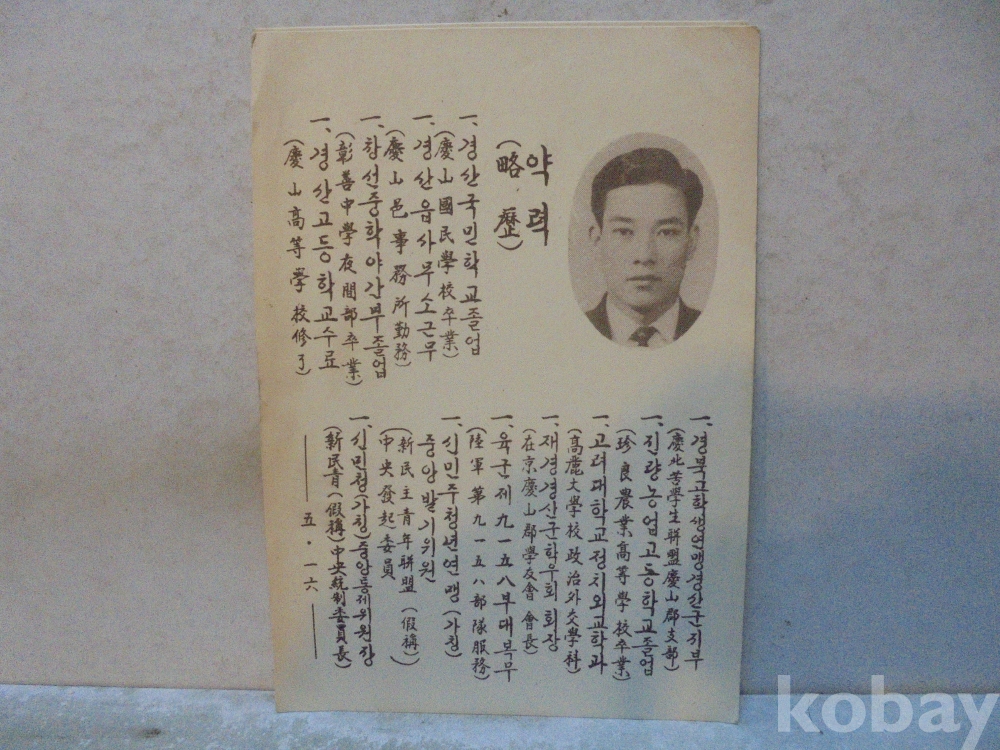 약력
(略歷)
一、경산국민학교졸업
(慶山國民學校卒業)
一、경산읍사무소근무
(慶山邑事務所勤務)
一、창선중학야간부졸업
(彰善中學夜間部卒業)
一、경산고등학교수료
(慶山高等學校修了)
一、경북고학생연맹경산군지부
(慶北苦學生聯盟慶山郡支部)
一、진량농업고등학교졸업
(珍良農業高等學校卒業)
一、고려대학교정치외교학과
(高麗大學校政治外交學科)
一、재경경산군학우회회장
(在京慶山郡學友會會長)
一、육군제九一五八부대복무
(陸軍第九一五八部隊服務)
一、신민주청년연맹(가칭)
중앙발기위원
(新民主青年聯盟(假稱)
中央發起委員)
一、신민청(가칭)중앙통제위원장
(新民青(假稱)中央統制委員長)
五・一六
kobay